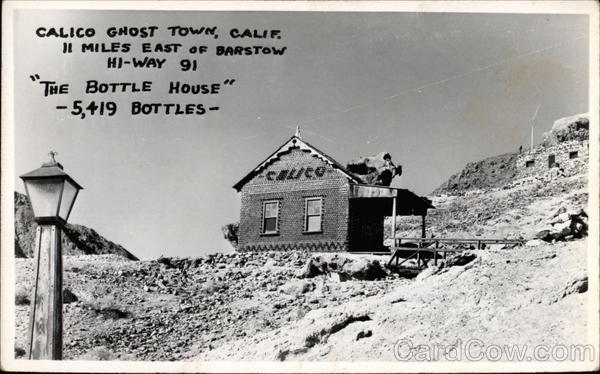 CALICO GHOST TOWN, CALIF.
11 MILES EAST OF BARSTOW
HI-WAY 91
"THE BOTTLE HOUSE"
-5,419 BOTTLES-
CALICO
CardCow.com